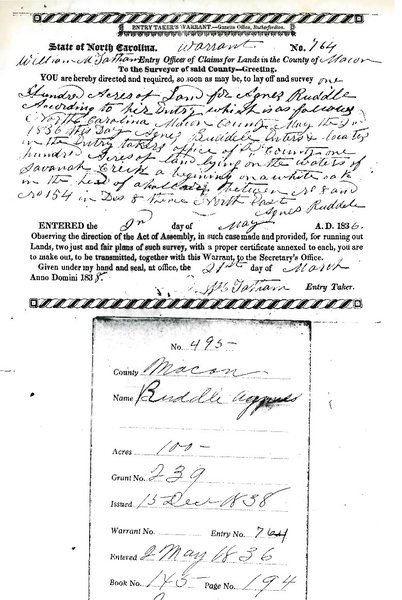 ENTRY TAKER'S WARRANT.—Gazette Office, Rutherfordton.
State of North Carolina. Warrant No. 764
William M Tatham Entry Officer of Claims for Lands in the County of Macon
To the Surveyor of said County—Greeting.
YOU are hereby directed and required, so soon as may be, to lay off and survey one
Hundred Acres of Land for Agnes Ruddle
According to his Entry which is as follows
North Carolina Macon County May the 2nd
1836 this Day Agnes Ruddle Enters & locates
in the Entry takers office of County one
hundred Acres of land lying on the waters of
Savanah Creek a beginning on a white oak
in the head of a between No 8 and
No 154 in Des 8 thence North East
Agnes Ruddle
ENTERED the 2nd day of May A. D. 1836.
Observing the direction of the Act of Assembly, in such case made and provided, for running out
Lands, two just and fair plans of such survey, with a proper certificate annexed to each, you are
to make out, to be transmitted, together with this Warrant, to the Secretary's Office.
Given under my hand and seal, at office, the 21st day of March
Anno Domini 1838. Tatham Entry Taker.
No. 495-
County Macon
Name Ruddle Agnes
Acres 100-
Grant No. 239
Issued 15 Dec 1838
Warrant No. Entry No. 764
Entered 2 May 1836
Book No. 145- Page No. 194